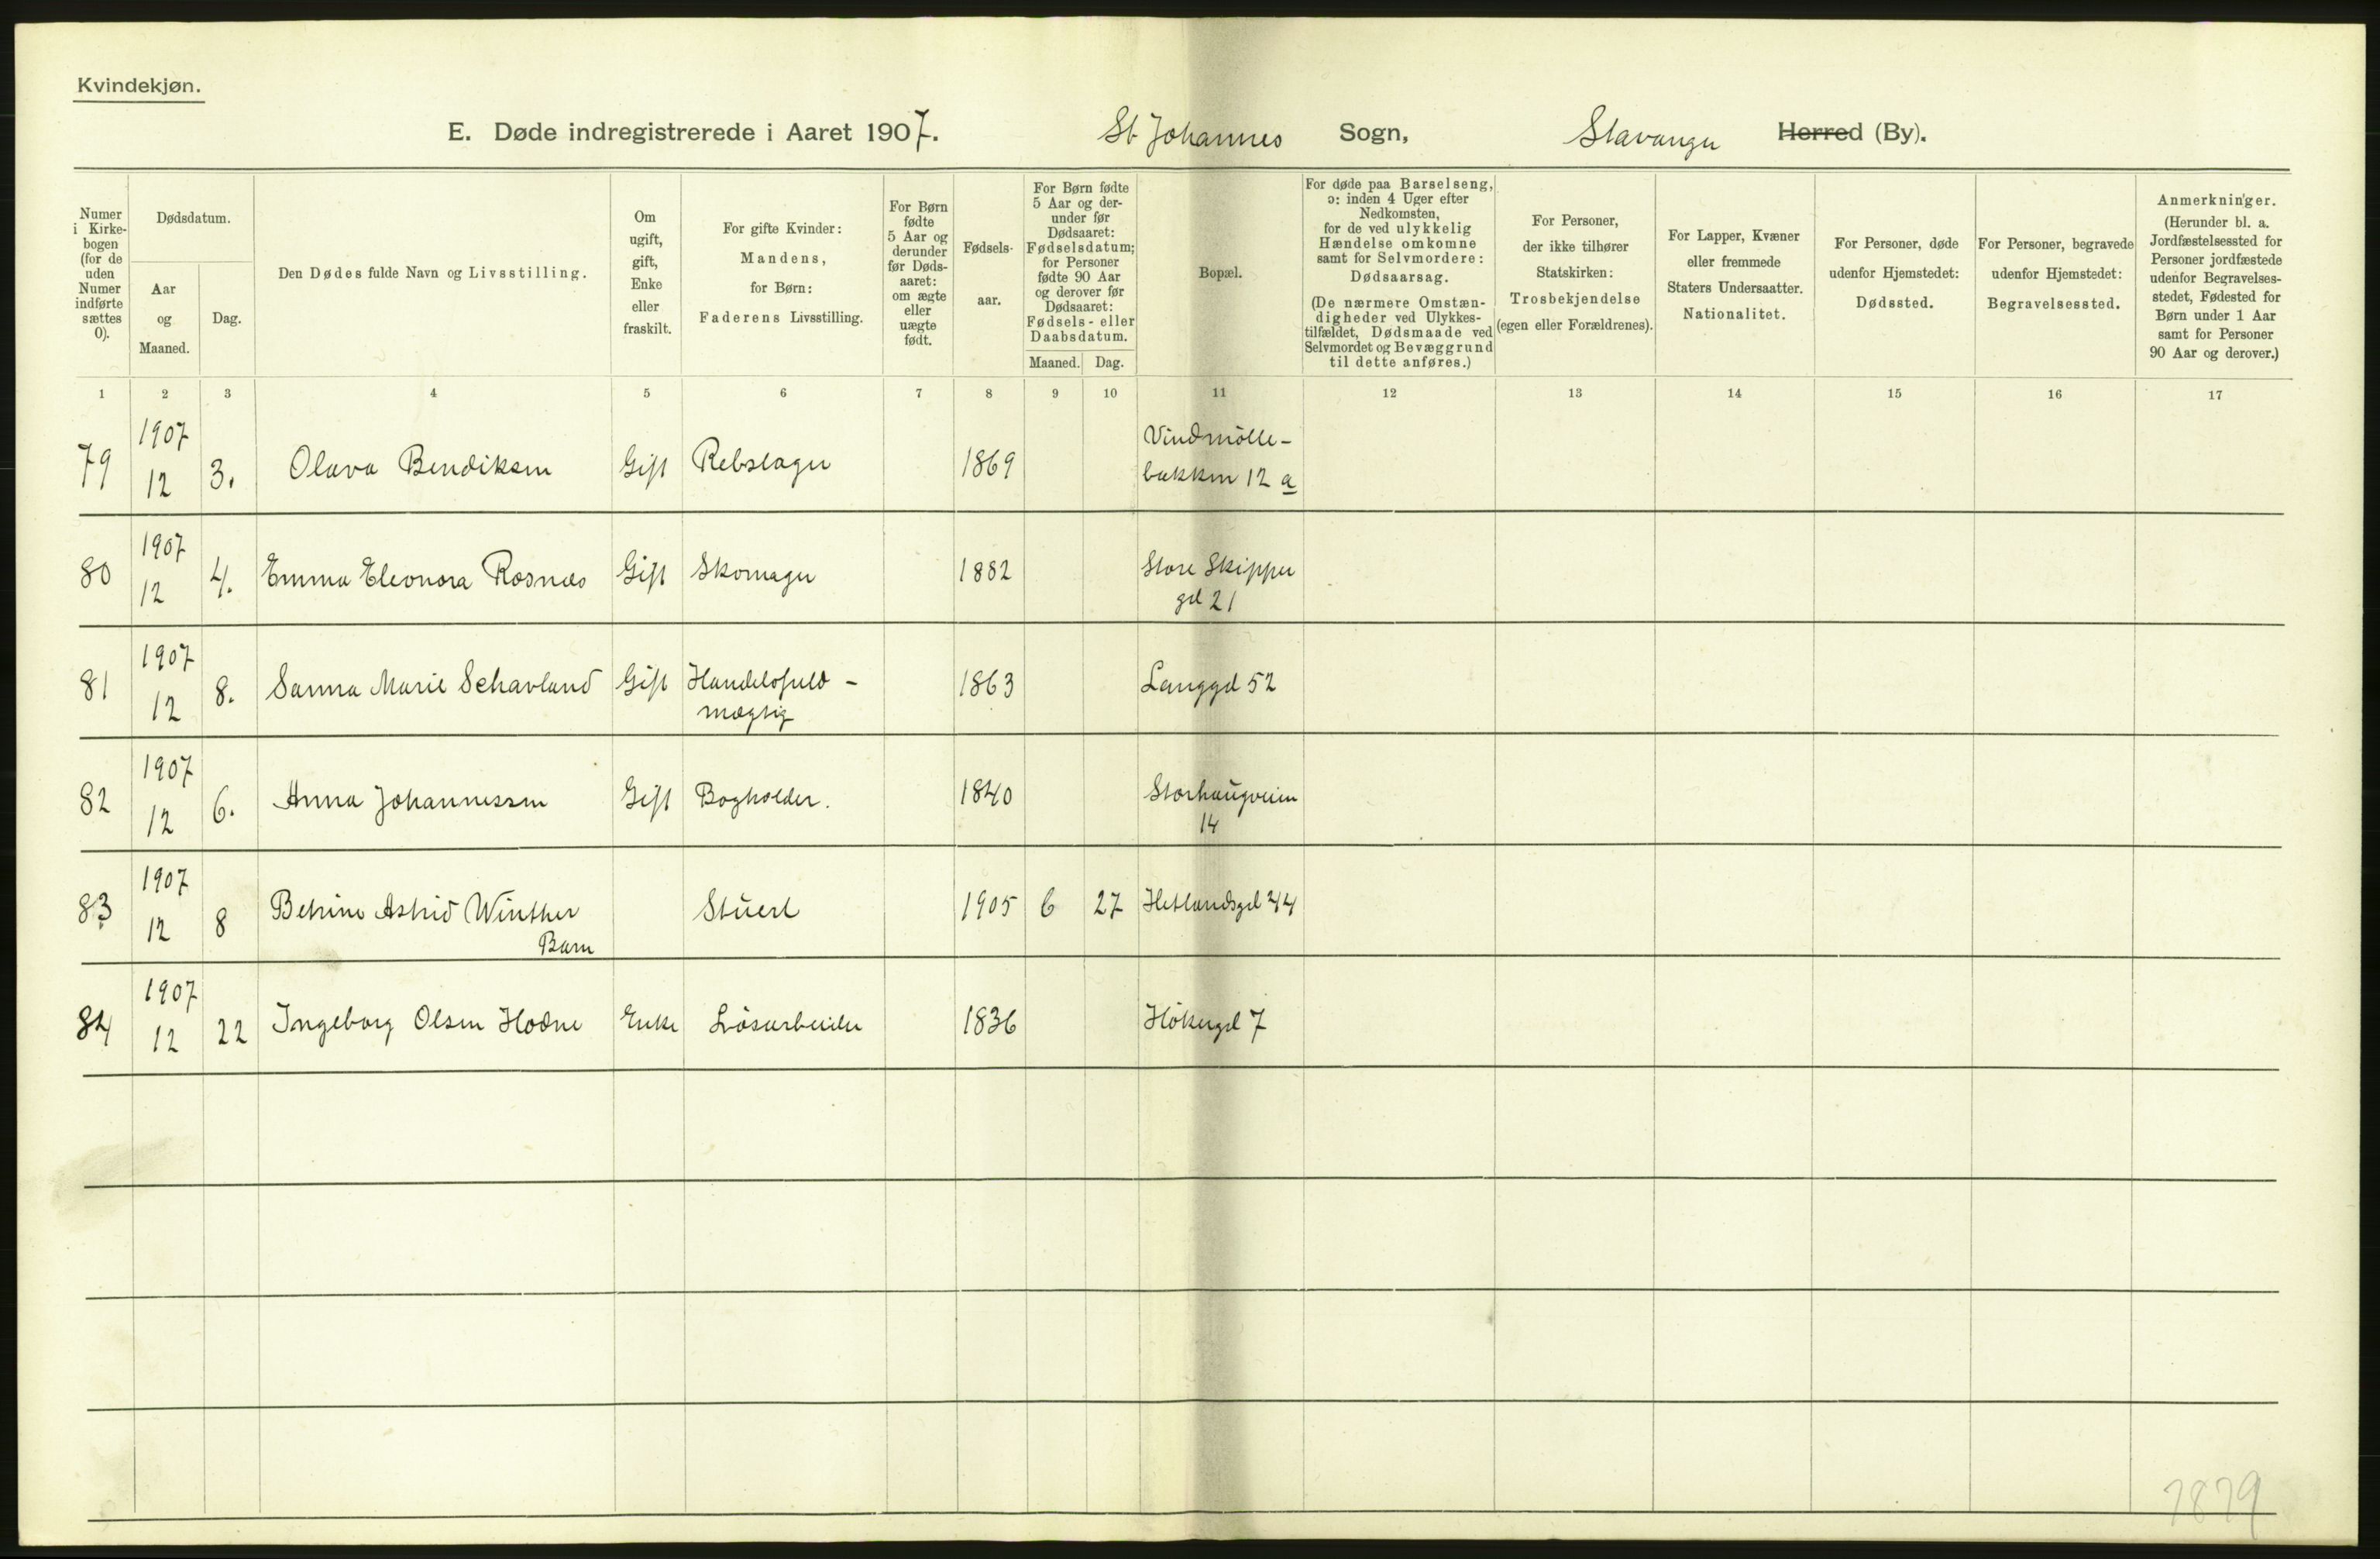 Kvindekjøn.
E. Døde indregistrerede i Aaret 1907. St Johannes Sogn, Stavanger Herred (By).
Numer i Kirkebogen (for de uden Numer indførte sættes 0).
Dødsdatum.
Aar og Maaned.
Dag.
Den Dødes fulde Navn og Livsstilling.
Om ugift, gift, Enke eller fraskilt.
For gifte Kvinder: Mandens, for Børn: Faderens Livsstilling.
For Børn fødte 5 Aar og derunder før Dødsaaret: om ægte eller uægte født.
Fødselsaar.
For Børn fødte 5 Aar og derunder før Dødsaaret: Fødselsdatum; for Personer fødte 90 Aar og derover før Dødsaaret: Fødsels- eller Daabsdatum.
Maaned. Dag.
Bopæl.
For døde paa Barselseng, ɔ: inden 4 Uger efter Nedkomsten, for de ved ulykkelig Hændelse omkomne samt for Selvmordere: Dødsaarsag. (De nærmere Omstændigheder ved Ulykkestilfældet, Dødsmaade ved Selvmordet og Bevæggrund til dette anføres.)
For Personer, der ikke tilhører Statskirken: Trosbekjendelse (egen eller Forældrenes).
For Lapper, Kvæner eller fremmede Staters Undersaatter. Nationalitet.
For Personer, døde udenfor Hjemstedet: Dødssted.
For Personer, begravede udenfor Hjemstedet: Begravelsessted.
Anmerkninger. (Herunder bl. a. Jordfæstelsessted for Personer jordfæstede udenfor Begravelsesstedet, Fødested for Børn under 1 Aar samt for Personer 90 Aar og derover.)
1 2 3 4 5 6 7 8 9 10 11 12 13 14 15 16 17
79 1907 12 3. Olava Bendiksen Gift Rebslager 1869 Vindmölle-bakken 12 a
80 1907 12 4. Emma Eleonora Rosnæs Gift Skomager 1882 Store Skipper gd 21
81 1907 12 8. Sanna Marie Schavland Gift Handelsfuld-mægtig 1863 Langgd 52
82 1907 12 6. Anna Johannessen Gift Bogholder. 1840 Storhaugveien 14
83 1907 12 8 Betrine Astrid Winther Barn Stuert 1905 6 27 Hetlandsgd 44
84 1907 12 22 Ingeborg Olsen Hodne Enke Lösarbeider 1836 Hökergd 7